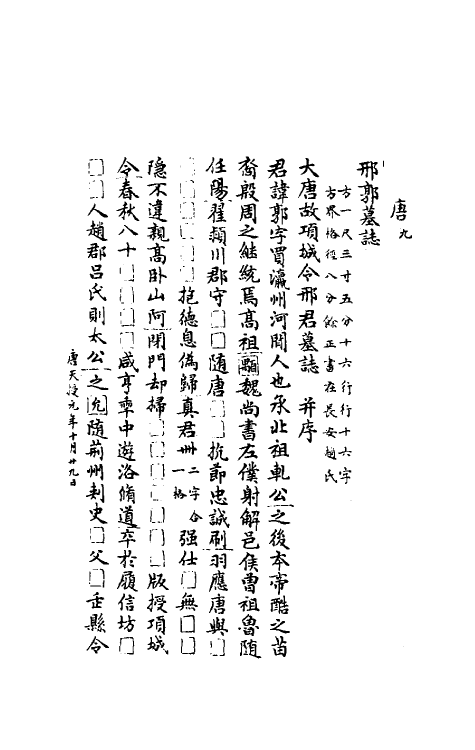 唐九
邢郭墓誌
方一尺三寸五分十六行行十六字
方界格徑八分餘正書在長安趙氏
大唐故項城令邢君墓誌 并序
君諱郭字買瀛州河間人也承北祖軋公之後本帝酷之苗
裔殷周之継統焉高祖顒魏尚書左僕射解邑侯曽祖魯随
任陽翟潁川郡守□□随唐□□抗節忠誠刷羽應唐興□
□□□□□□抱德息偽歸真君卅二字合一格强仕□無□□
隠不違親高卧山阿閉門却掃□□□□□□□版授項城
令春秋八十□□□□□咸亨年中遊洛脩道卒於履信坊□
□□人趙郡吕氏則太公之允随荆州刺史□父□壬縣令
唐天授元年十月廿九日